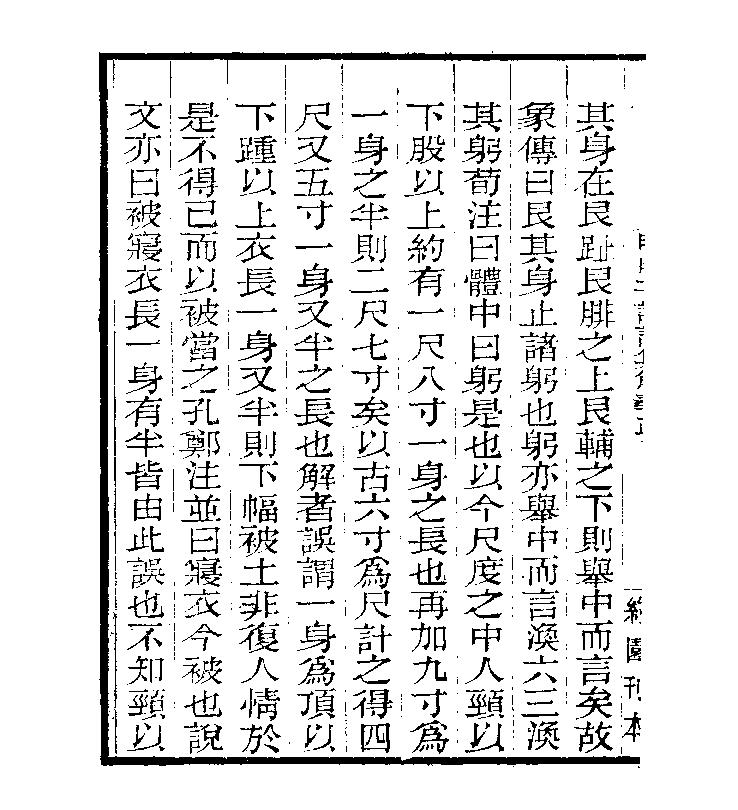 其身在艮趾艮腓之上艮輔之下則舉中而言矣故
象傳曰艮其身止諸躬也躬亦舉中而言渙六三渙
其躬荀注曰體中曰躬是也以今尺度之中人頸以
下股以上約有一尺八寸一身之長也再加九寸爲
一身之半則二尺七寸矣以古六寸爲尺計之得四
尺又五寸一身又半之長也解者誤謂一身爲頂以
下踵以上衣長一身又半則下幅被土非復人情於
是不得已而以被當之孔鄭注並曰寢衣今被也說
文亦曰被寢衣長一身有半皆由此誤也不知頸以
約園刊本